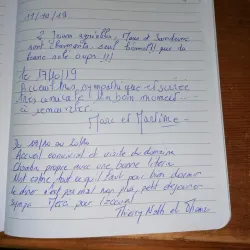 11/10/19
2 jours agréables, Marc et Sandrine
sont charmants, seul bémol pas de
le 17/10/19
Accueil très sympathique et soirée
très conviviale. Un bon moment
à remonter
Marc et Martine
Du 19/10 au 20/10
Accueil convivial et visite du domaine
Chambre propre avec une bonne literie
Nuit calme tout ce qu'il faut pour bien dormir
le diner n'est pas mal non plus, petit déjeuner
sympa Merci pour l'accueil
Thierry et